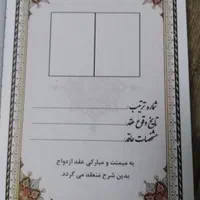 شماره ترتیب:
تاریخ وقوع عقد:
مشخصات عاقد:
به میمنت و مبارکی عقد ازدواج
بدین شرح منعقد می گردد.